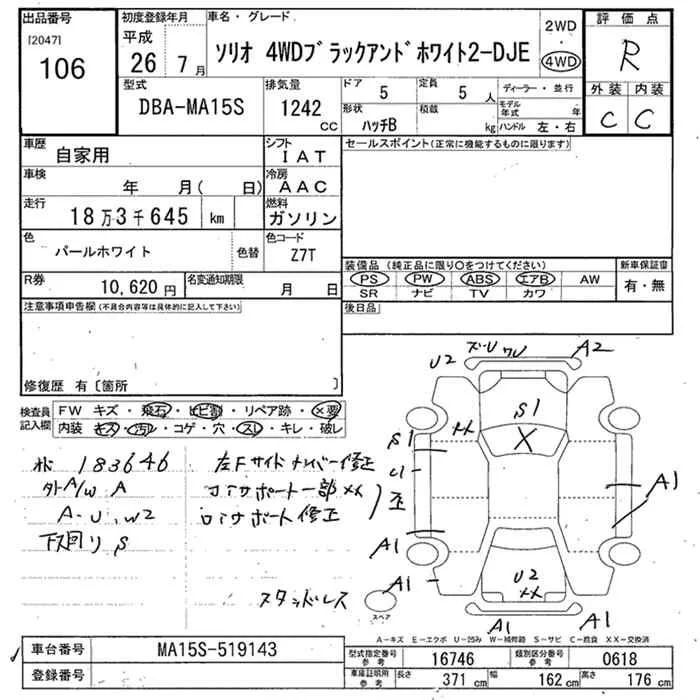 出品番号
[2047]
106
初度登録年月
平成
26年 7月
車名・グレード
ソリオ 4WDブラックアンドホワイト2-DJE
2WD
・
4WD
評価点
R
外装 内装
C C
型式
DBA-MA15S
排気量
1242 CC
ドア 5
定員 5 人
形状
ハッチB
積載 kg
ディーラー・並行
モデル年式 年
ハンドル 左・右
車歴
自家用
シフト
IAT
車検
年 月( 日)
冷房
AAC
走行
18万3千645 km
燃料
ガソリン
色
パールホワイト
色替
色コード
Z7T
R券
10,620円
名変通知期限
月 日
セールスポイント(正常に機能するものに限ります)
装備品 (純正品に限り○をつけてください)
PS PW ABS エアB AW
SR ナビ TV カワ
新車保証書
有・無
後日品
注意事項申告欄(不具合内容等は具体的に記入して下さい)
修復歴 有〔箇所 〕
検査員記入欄
FW キズ・飛石・ヒビ割・リペア跡・×要
内装 キズ・汚れ・コゲ・穴・スレ・キレ・破レ
183646
外A/W A
A-U、W2
下回り S
左Fサイドメンバー修正
コアサポート一部XX
コアサポート修正
スタッドレス
U2
A2
S1
XX
X
S1
A1
A1
A1
U2
XX
A1
A1
スペア
A-キズ E-エクボ U-凹み W-補修跡 S-サビ C-腐食 XX-交換済
車台番号
MA15S-519143
登録番号
型式指定番号 参考
16746
類別区分番号 参考
0618
車庫証明用 参考
長さ 371 cm
幅 162 cm
高さ 176 cm